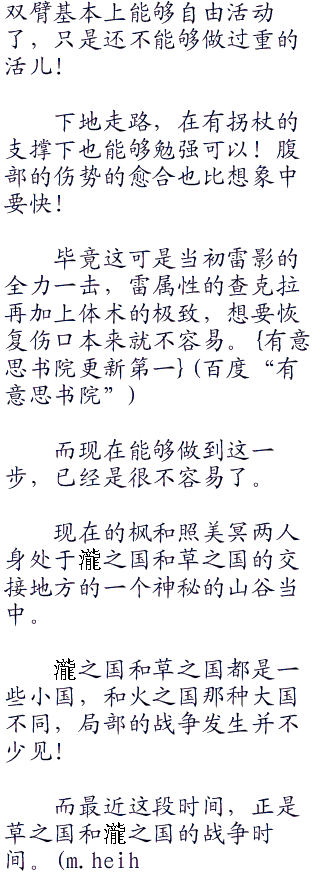 双臂基本上能够自由活动
了，只是还不能够做过重的
活儿！
下地走路，在有拐杖的
支撑下也能够勉强可以！腹
部的伤势的愈合也比想象中
要快！
毕竟这可是当初雷影的
全力一击，雷属性的查克拉
再加上体术的极致，想要恢
复伤口本来就不容易。{有意
思书院更新第一}(百度“有
意思书院”)
而现在能够做到这一
步，已经是很不容易了。
现在的枫和照美冥两人
身处于瀧之国和草之国的交
接地方的一个神秘的山谷当
中。
瀧之国和草之国都是一
些小国，和火之国那种大国
不同，局部的战争发生并不
少见！
而最近这段时间，正是
草之国和瀧之国的战争时
间。(m.heih